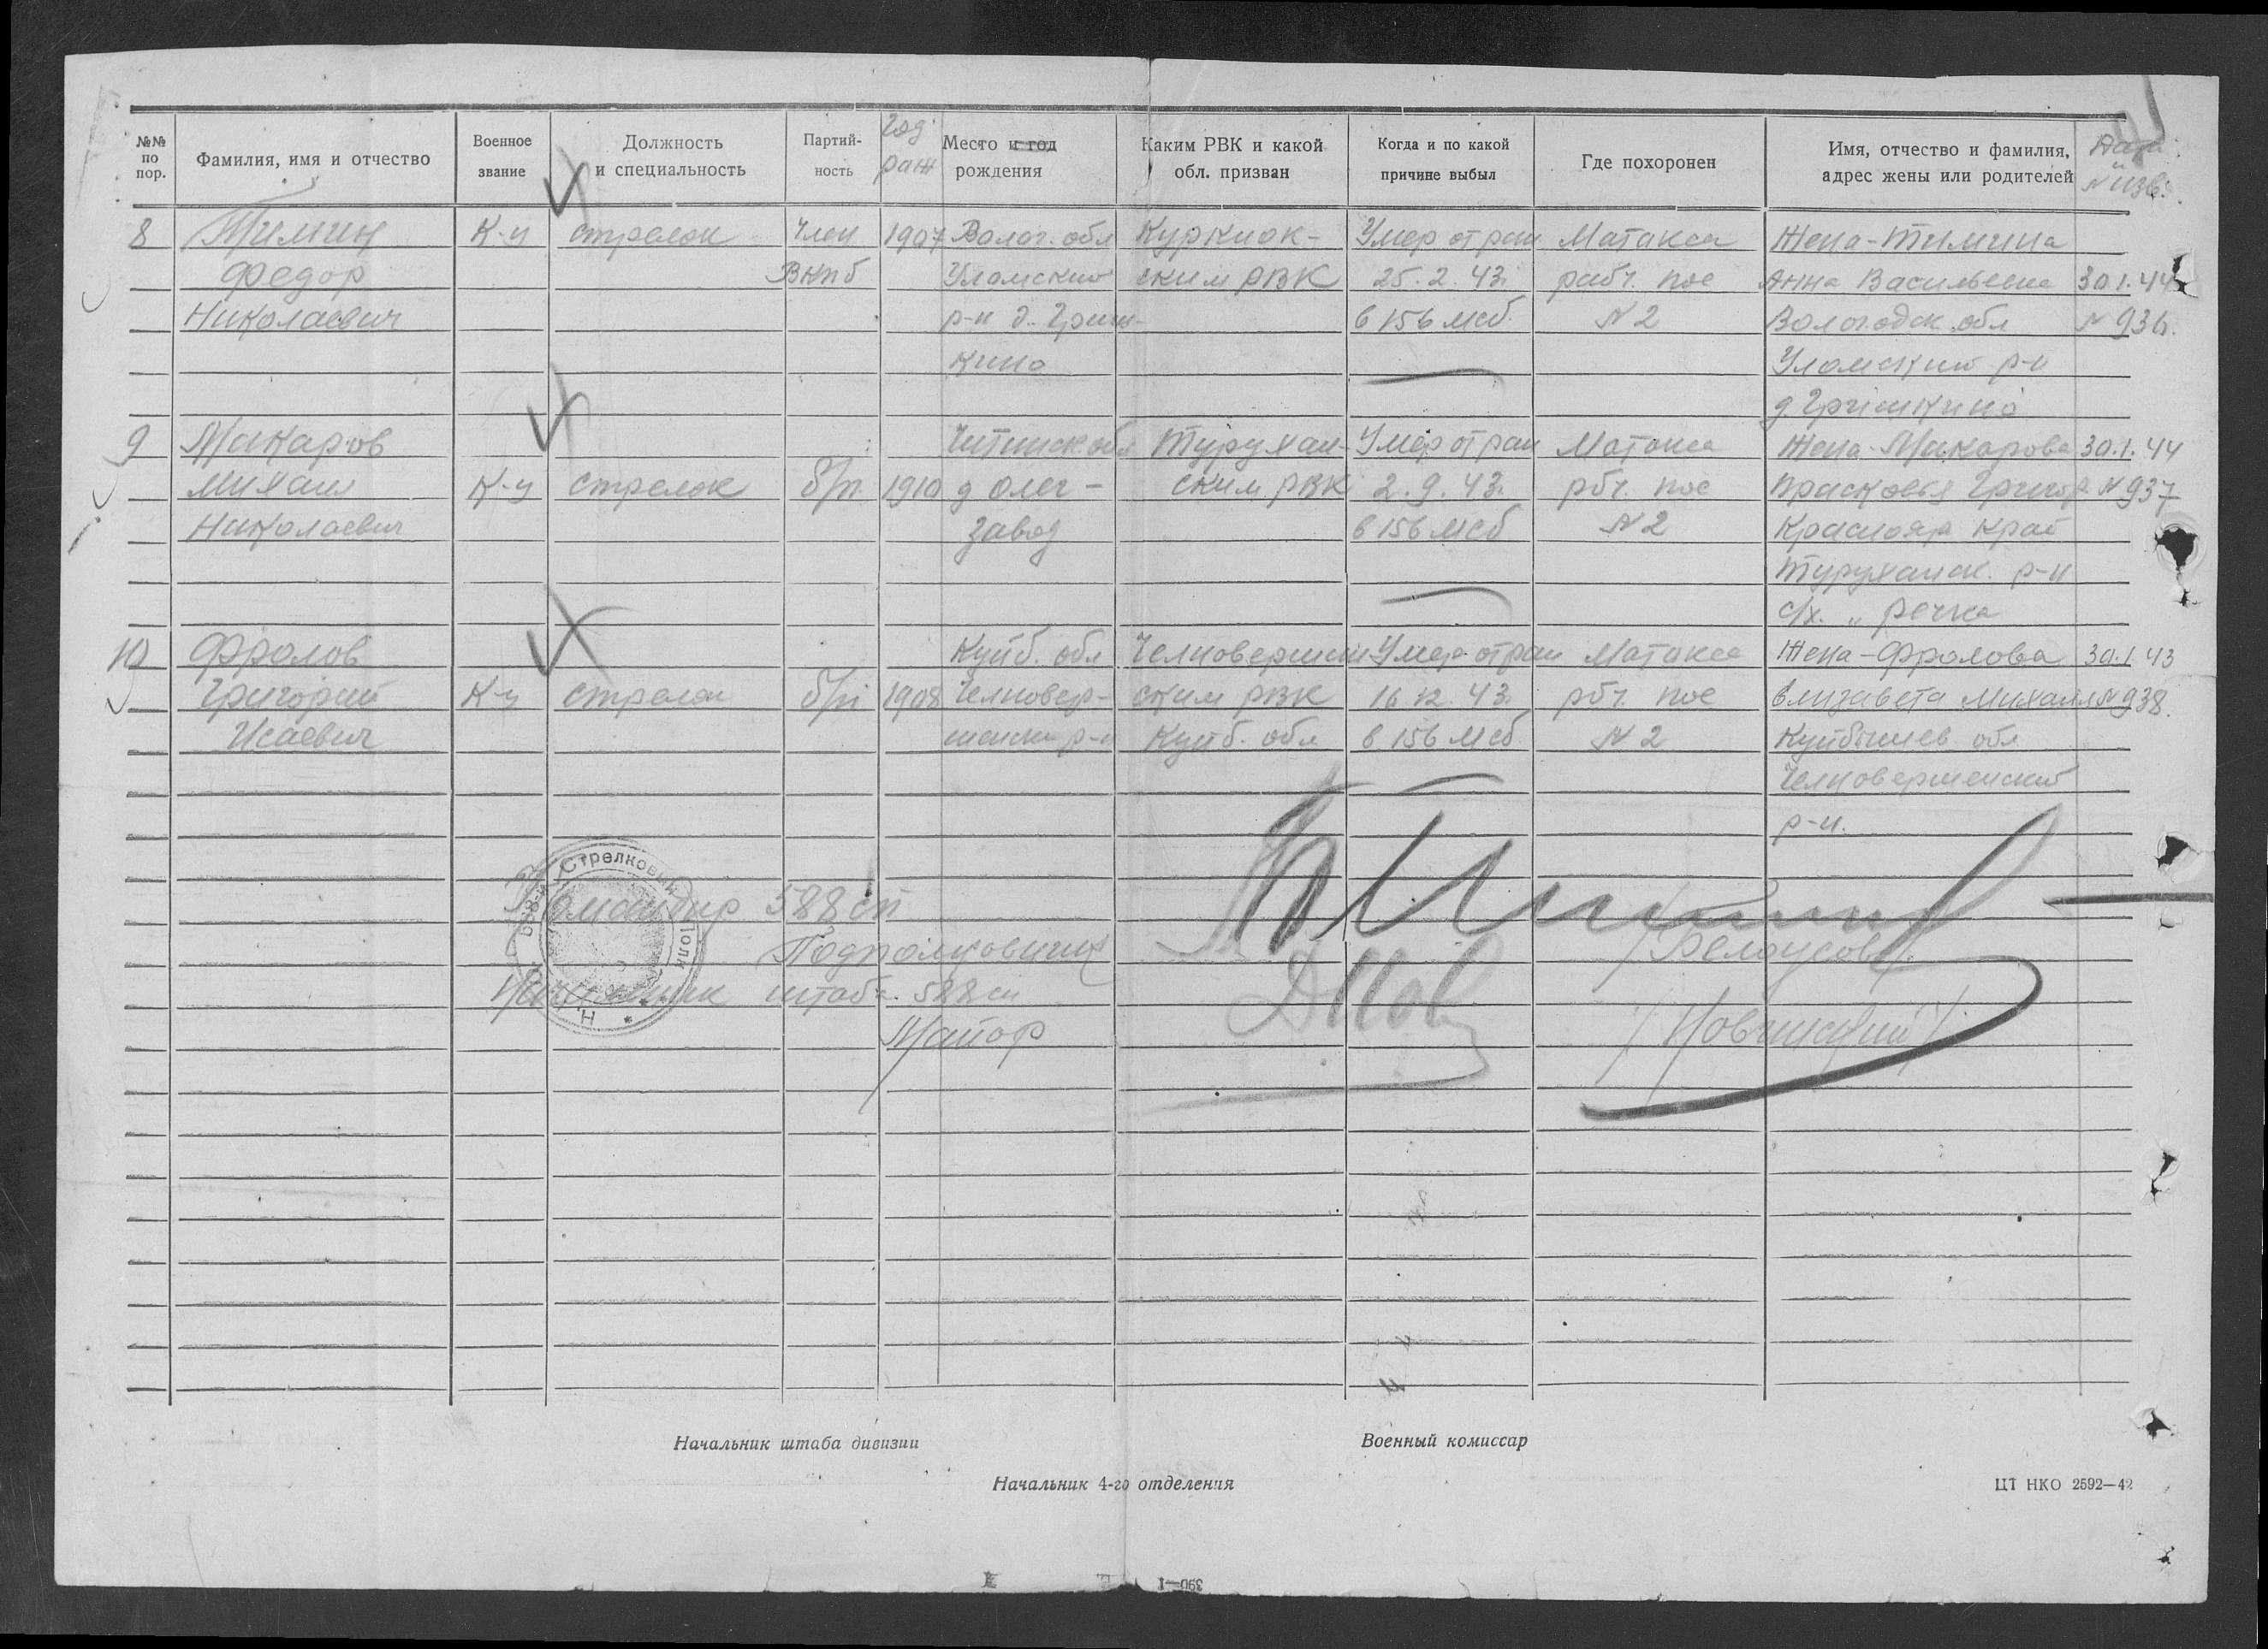 №№ по пор.
Фамилия, имя и отчество
Военное звание
Должность и специальность
Партийность
Год рож
Место и год рождения
Каким РВК и какой обл. призван
Когда и по какой причине выбыл
Где похоронен
Имя, отчество и фамилия, адрес жены или родителей
Дата и № изв.
8 Тимин К-ц стрелок Член 1907 Волог. обл Куркиок- Умер от ран Матакса Жена-Тимина
Федор ВКПб Уломский ским РВК 25.2.43. рабч. пос Анна Васильевна 30.1.44
Николаевич р-н д. Гриш- в 156 мсб. №2 Вологодск. обл № 936.
кино Уломский р-н
д. Гришкино
9 Макаров Читинск. обл Турухан- Умер от ран Матакса Жена-Макарова 30.1.44
Михаил К-ц стрелок б/п. 1910 д Олег- ским РВК 2.9.43. рбч. пос Прасковья Григор. № 937
Николаевич завод в 156 мсб №2 Краснояр край
Туруханск. р-н
с/х. „ речка
10 Фролов Куйб. обл Челновершин Умер от ран Матакса Жена-Фролова 30.1.43
Григорий К-ц стрелок б/п 1908 Челновер- ским РВК 16.12.43. рбч. пос Елизавета Михайл № 938.
Исаевич шенски р-н Куйб. обл в 156 мсб №2 Куйбышев обл
Челновершенский
р-н.
Стрелковый Полк
Командир 588 сп
Подполковник /Белоусов/
Начальник штаба 588 сп
Майор /Новицкий/
Начальник штаба дивизии
Военный комиссар
Начальник 4-го отделения
ЦТ НКО 2592—42
390—1